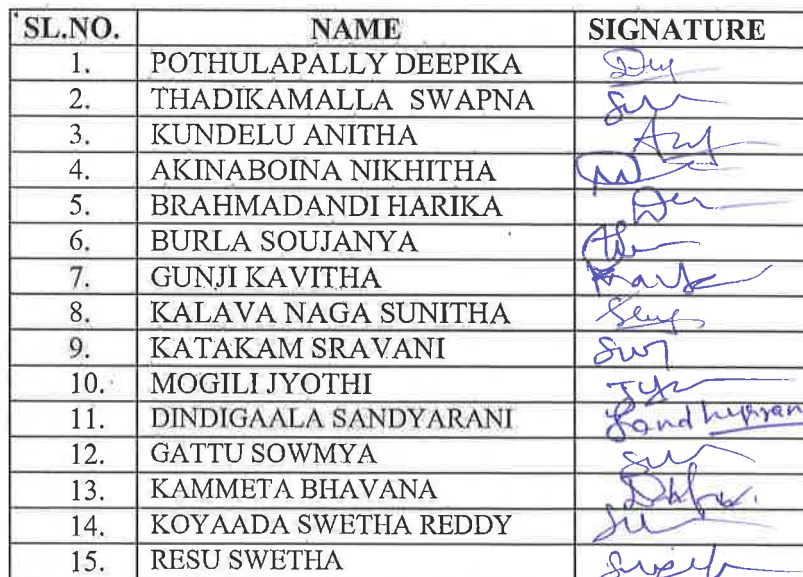 SL.NO. NAME SIGNATURE
1. POTHULAPALLY DEEPIKA
2. THADIKAMALLA SWAPNA
3. KUNDELU ANITHA
4. AKINABOINA NIKHITHA
5. BRAHMADANDI HARIKA
6. BURLA SOUJANYA
7. GUNJI KAVITHA
8. KALAVA NAGA SUNITHA
9. KATAKAM SRAVANI
10. MOGILI JYOTHI
11. DINDIGAALA SANDYARANI
12. GATTU SOWMYA
13. KAMMETA BHAVANA
14. KOYAADA SWETHA REDDY
15. RESU SWETHA